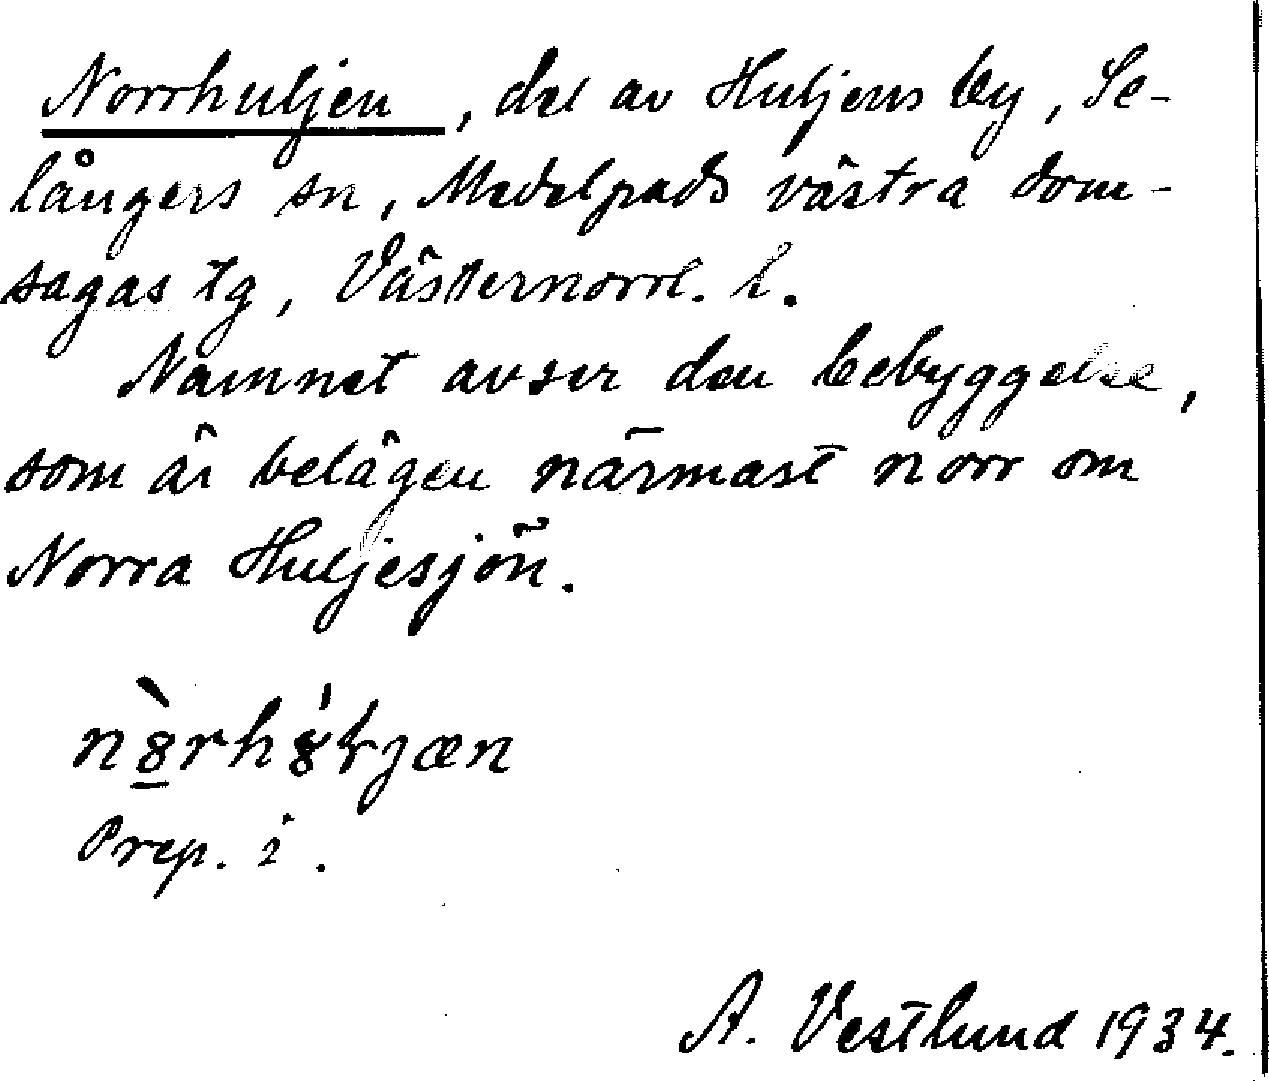 Norrhuljen, del av Huljens by, Se-
långers sn, Medelpads västra dom-
sagas tg, Västernorrl. l.
Namnet avser den bebyggelse,
som är belägen närmast norr om
Norra Huljesjön.
Prep. i.
A. Vestlund 1934.